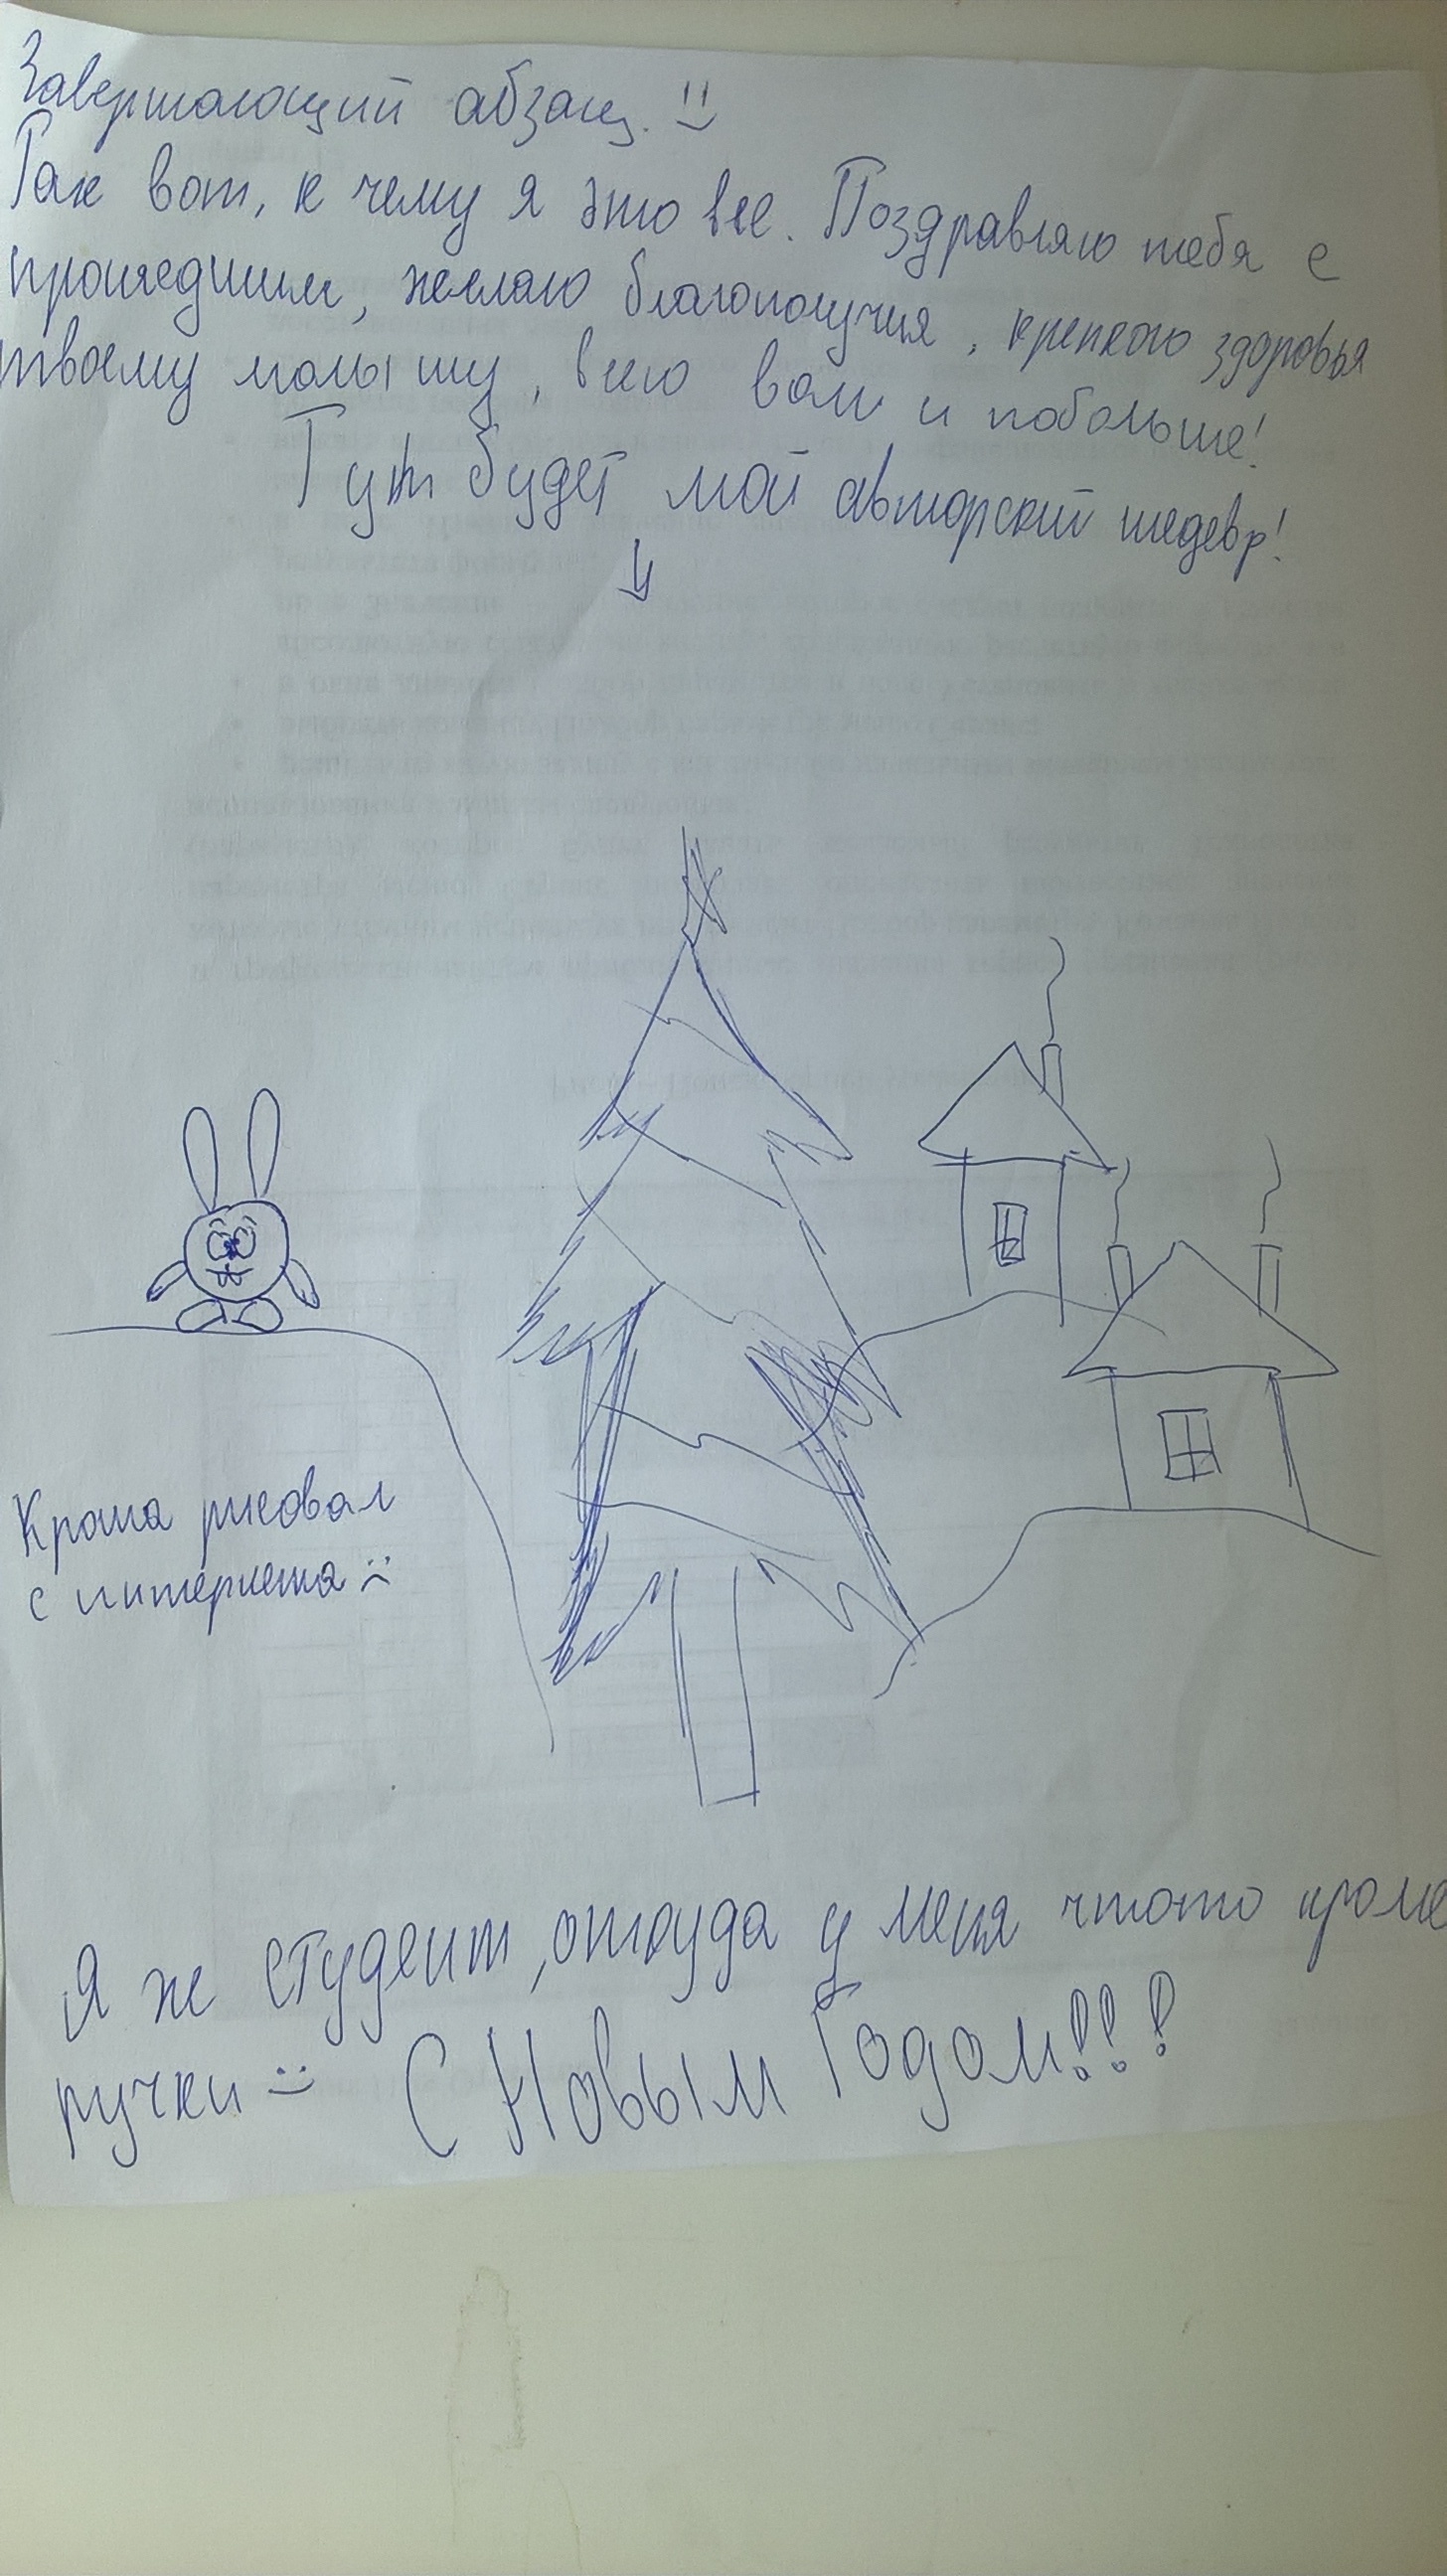 Завершающий абзац. :)
Так вот, к чему я это все. Поздравляю тебя с
прошедшим, желаю благополучия, крепкого здоровья
твоему малышу, всего вам и побольше!
Тут будет мой авторский шедевр!
Кроша рисовал
с интернета :)
Я же студент, откуда у меня чтото кроме
ручки :) С Новым Годом!!!